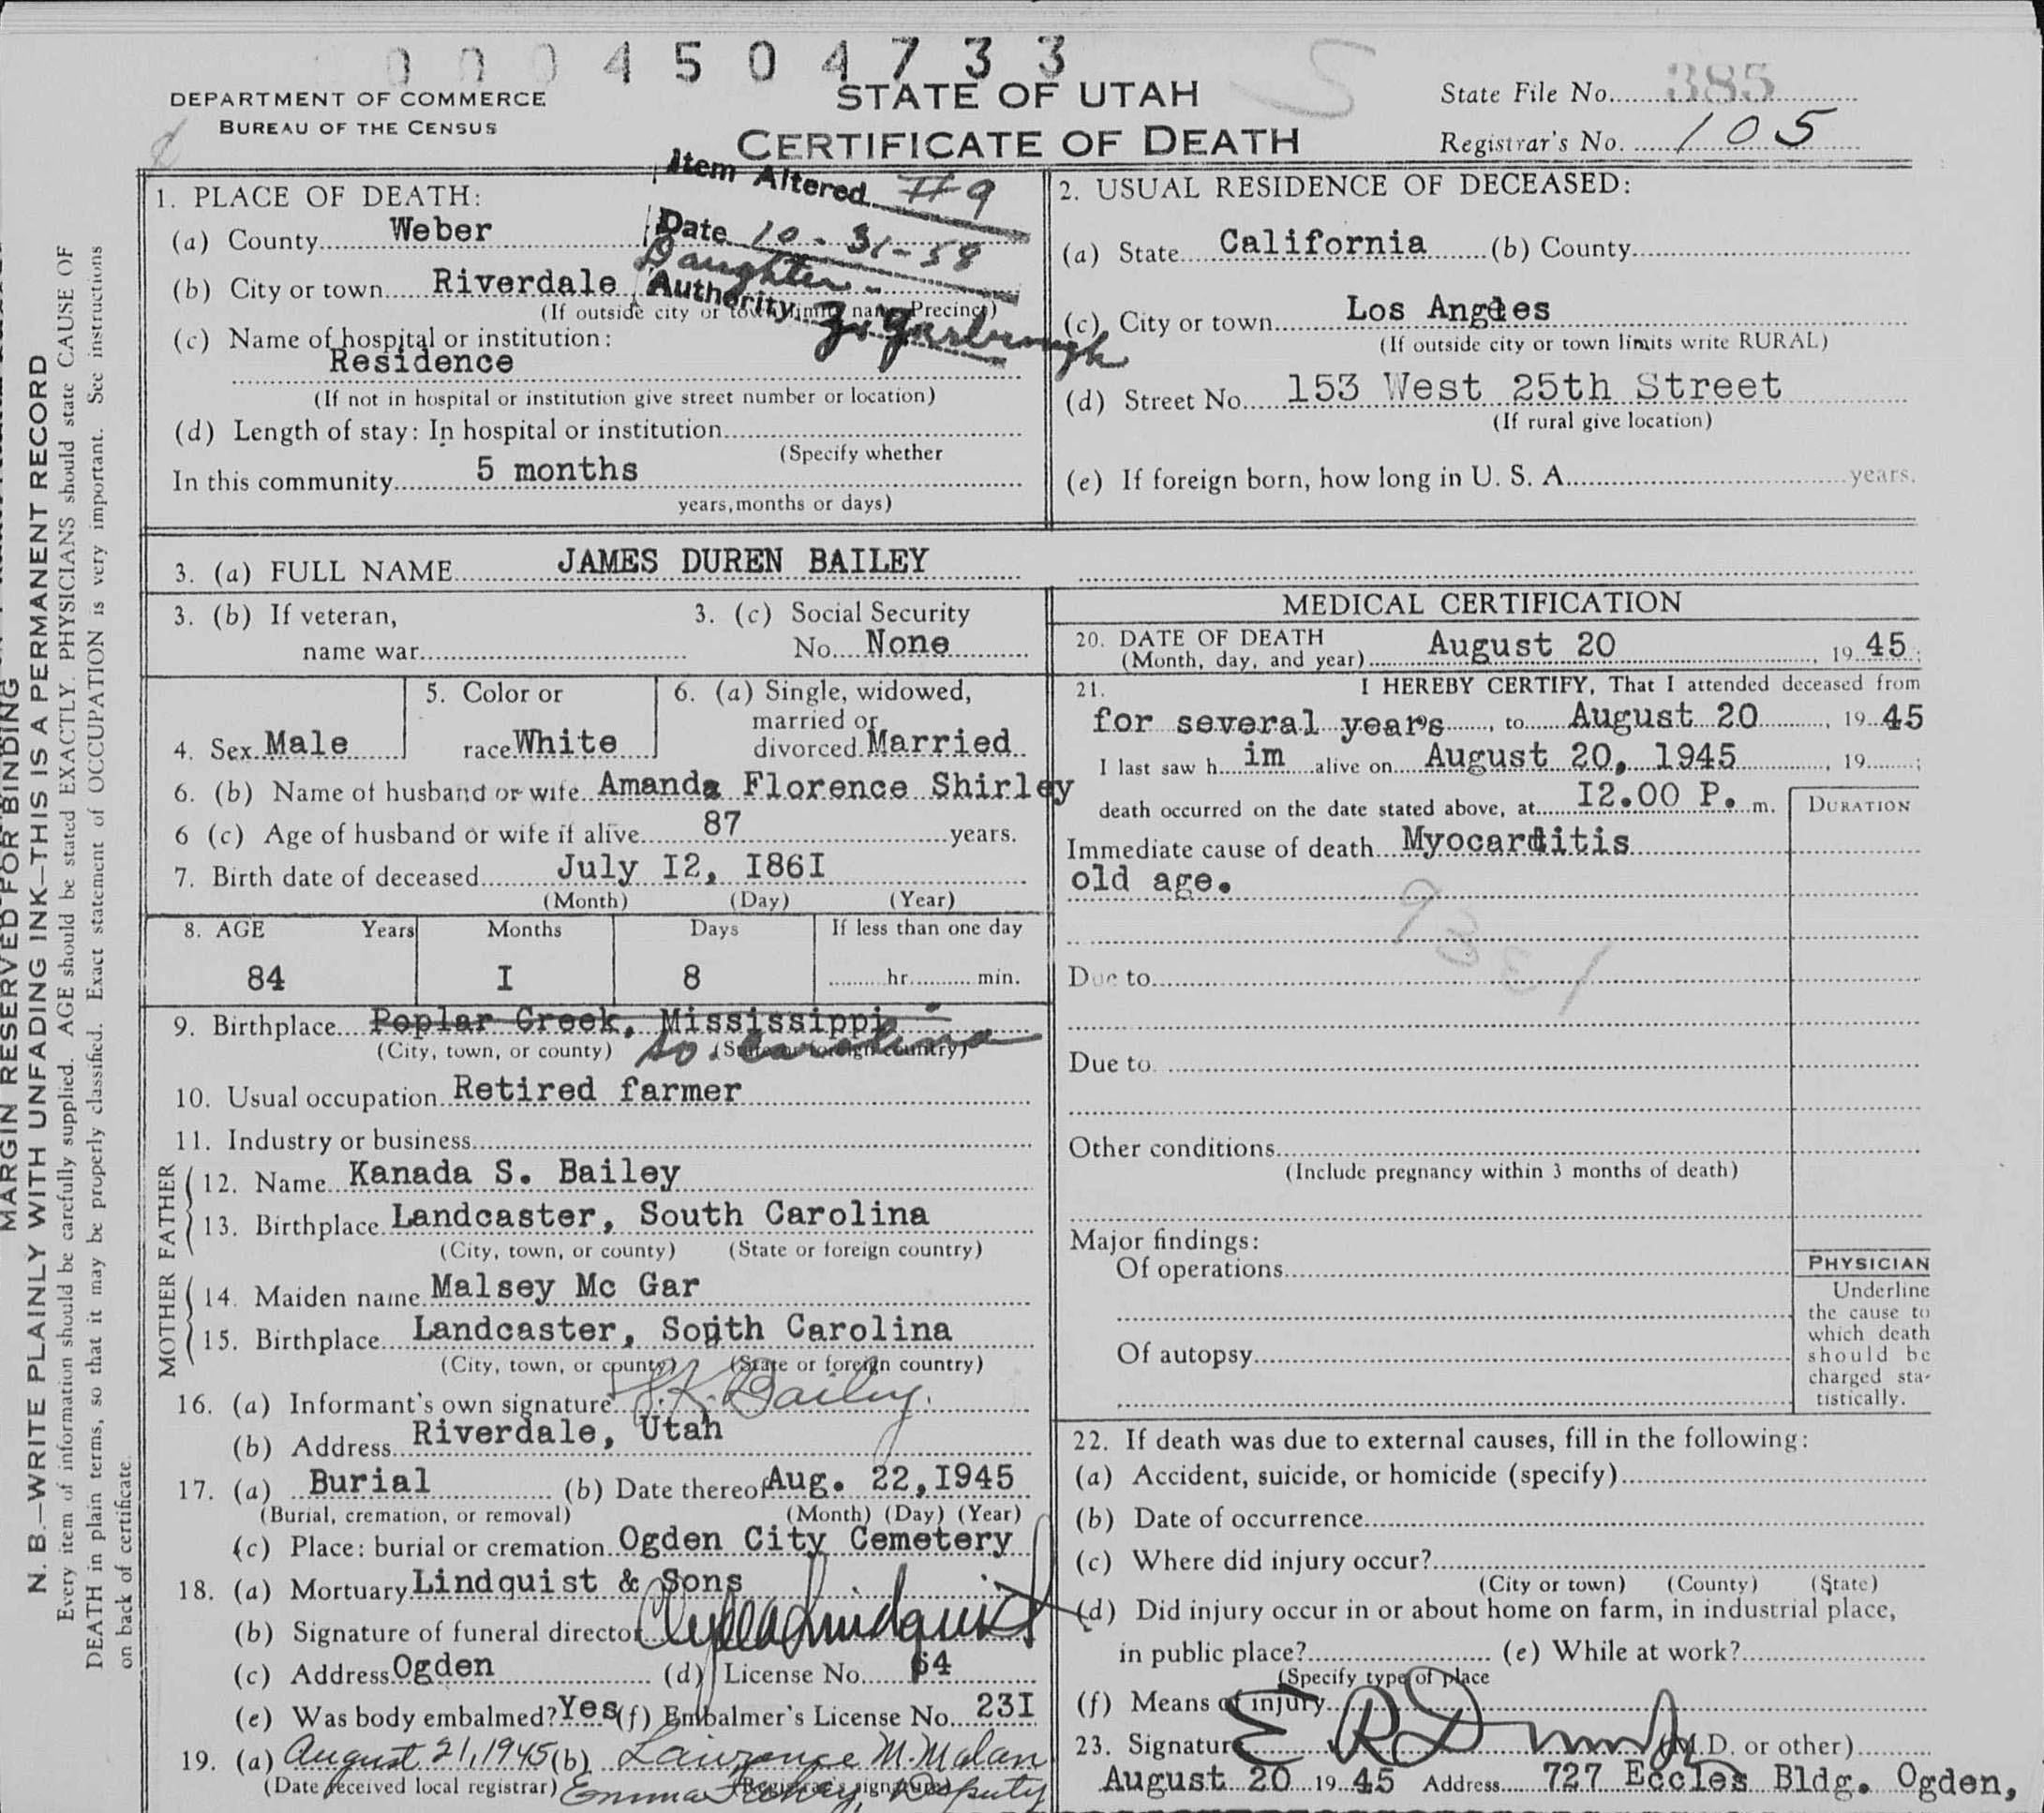 0 0 0 4 5 0 4 7 3 3
DEPARTMENT OF COMMERCE
BUREAU OF THE CENSUS
STATE OF UTAH
CERTIFICATE OF DEATH
State File No. 385
Registrar's No. 105
Item Altered #9
Date 10-31-58
Daughter
Authority
1. PLACE OF DEATH:
(a) County Weber
(b) City or town Riverdale
(If outside city or town limits name Precinct)
(c) Name of hospital or institution:
Residence
(If not in hospital or institution give street number or location)
(d) Length of stay: In hospital or institution
(Specify whether
In this community 5 months
years, months or days)
2. USUAL RESIDENCE OF DECEASED:
(a) State California (b) County
(c) City or town Los Angeles
(If outside city or town limits write RURAL)
(d) Street No. 153 West 25th Street
(If rural give location)
(e) If foreign born, how long in U. S. A. years.
3. (a) FULL NAME JAMES DUREN BAILEY
3. (b) If veteran,
name war
3. (c) Social Security
No. None
4. Sex Male
5. Color or
race White
6. (a) Single, widowed,
married or
divorced Married
6. (b) Name of husband or wife Amanda Florence Shirley
6 (c) Age of husband or wife if alive 87 years.
7. Birth date of deceased July I2, I86I
(Month) (Day) (Year)
8. AGE Years Months Days If less than one day
84 I 8 hr. min.
9. Birthplace Poplar Creek, Mississippi
So. Carolina
(City, town, or county) (State or foreign country)
10. Usual occupation Retired farmer
11. Industry or business
FATHER
12. Name Kanada S. Bailey
13. Birthplace Landcaster, South Carolina
(City, town, or county) (State or foreign country)
MOTHER
14. Maiden name Malsey Mc Gar
15. Birthplace Landcaster, South Carolina
(City, town, or county) (State or foreign country)
16. (a) Informant's own signature K. Bailey.
(b) Address Riverdale, Utah
17. (a) Burial (b) Date thereof Aug. 22, I945
(Burial, cremation, or removal) (Month) (Day) (Year)
(c) Place: burial or cremation Ogden City Cemetery
18. (a) Mortuary Lindquist & Sons
(b) Signature of funeral director Lindquist
(c) Address Ogden (d) License No. 64
(e) Was body embalmed? Yes (f) Embalmer's License No. 23I
19. (a) August 21, 1945 (b) Lawrence M. Malan
(Date received local registrar) (Registrar's signature)
Emma Deputy
MEDICAL CERTIFICATION
20. DATE OF DEATH
(Month, day, and year) August 20, 19 45;
21. I HEREBY CERTIFY, That I attended deceased from
for several years, to August 20, 19 45
I last saw h im alive on August 20, 1945, 19 ;
death occurred on the date stated above, at I2.00 P. m.
DURATION
Immediate cause of death Myocarditis
old age.
Due to
Due to
Other conditions
(Include pregnancy within 3 months of death)
Major findings:
Of operations
Of autopsy
PHYSICIAN
Underline
the cause to
which death
should be
charged sta-
tistically.
22. If death was due to external causes, fill in the following:
(a) Accident, suicide, or homicide (specify)
(b) Date of occurrence
(c) Where did injury occur?
(City or town) (County) (State)
(d) Did injury occur in or about home on farm, in industrial place,
in public place? (e) While at work?
(Specify type of place
(f) Means of injury
23. Signature E R (M.D. or other)
August 20 19 45 Address 727 Eccles Bldg. Ogden,
MARGIN RESERVED FOR BINDING
N. B.—WRITE PLAINLY WITH UNFADING INK—THIS IS A PERMANENT RECORD
Every item of information should be carefully supplied. AGE should be stated EXACTLY. PHYSICIANS should state CAUSE OF
DEATH in plain terms, so that it may be properly classified. Exact statement of OCCUPATION is very important. See instructions
on back of certificate.